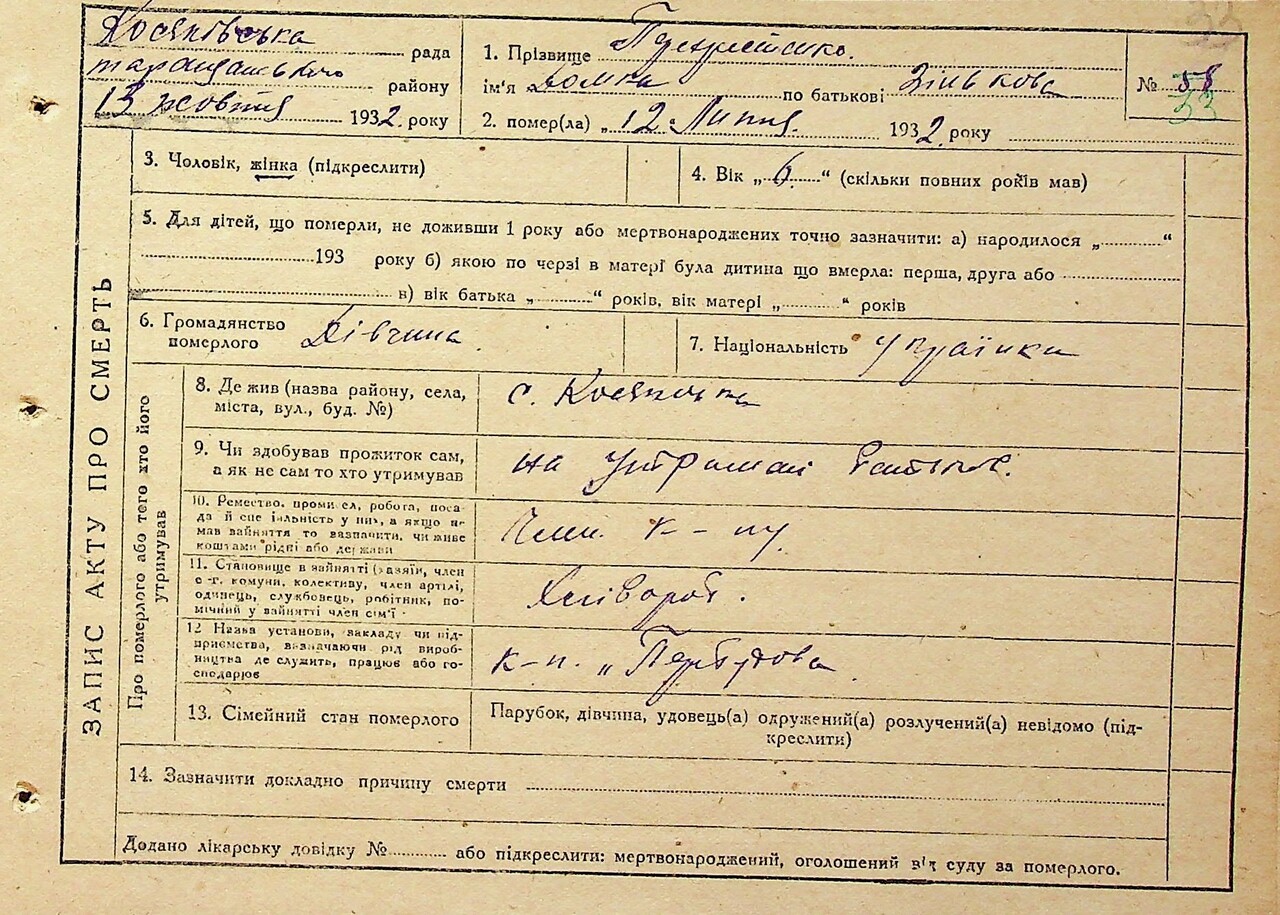 Косяківська рада
таращанського району
13 жовтня 1932 року
1. Прізвище
ім'я Домка по батькові Зінькова
2. помер(ла) „ 12 Липня 1932 року
№ 58
33
ЗАПИС АКТУ ПРО СМЕРТЬ
3. Чоловік, жінка (підкреслити)
4. Вік „ 6 “ (скільки повних років мав)
5. Для дітей, що померли, не доживши 1 року або мертвонароджених точно зазначити: а) народилося „ “
193 року б) якою по черзі в матері була дитина що вмерла: перша, друга або
в) вік батька „ “ років, вік матері „ “ років
6. Громадянство померлого Дівчина
7. Національність Українка
Про померлого або того хто його утримував
8. Де жив (назва району, села,
міста, вул., буд. №)
с. Косяківка
9. Чи здобував прожиток сам,
а як не сам то хто утримував
на утриман батьків.
10. Ремество, промисел, робота, поса-
да й спеціальність у них, а якщо не
мав зайняття то зазначити, чи живе
коштами рідні або держави
Член к-пу
11. Становище в зайнятті (хазяїн, член
с-г. комуни, колективу, член артілі,
одинець, службовець, робітник, по-
мічний у зайнятті член сім'ї
Хлібороб.
12 Назва установи, закладу чи під-
приємства, визначаючи рід вироб-
ництва де служить, працює або го-
сподарює
к-п. „Пербудова
13. Сімейний стан померлого
Парубок, дівчина, удовець(а) одружений(а) розлучений(а) невідомо (під-
креслити)
14. Зазначити докладно причину смерти
Додано лікарську довідку № або підкреслити: мертвонароджений, оголошений від суду за померлого.